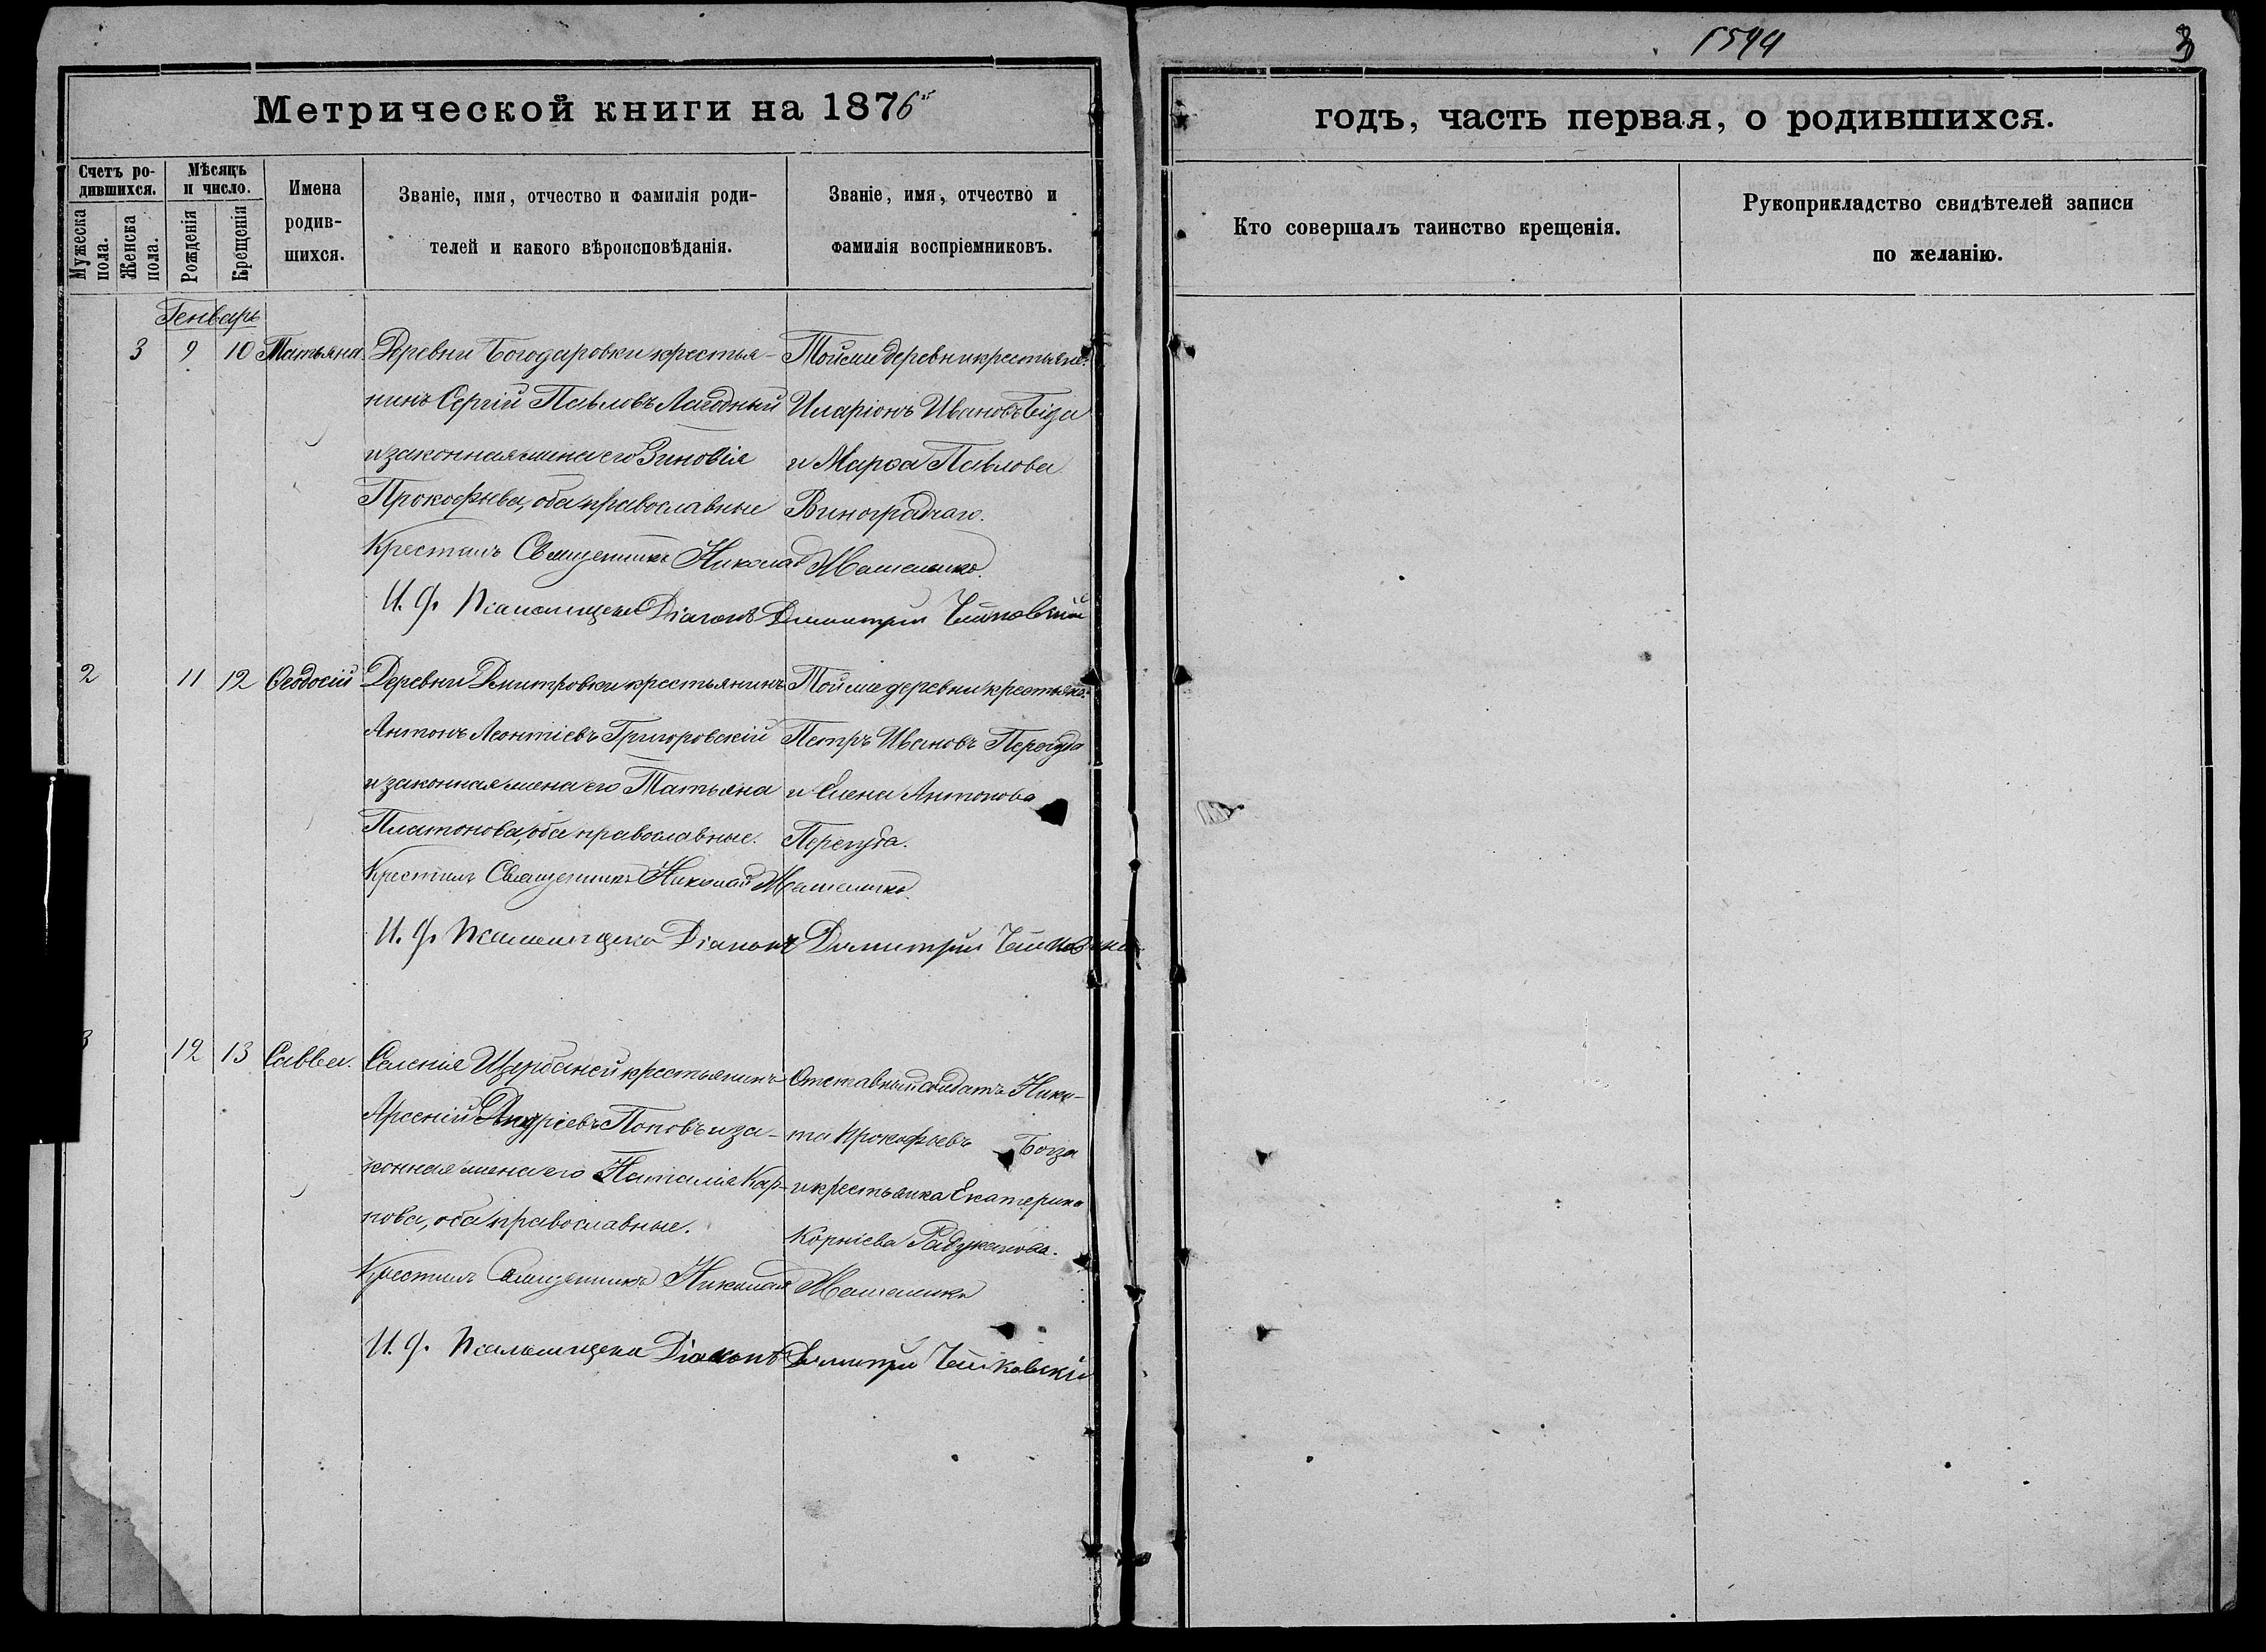 1544
3
Метрической книги на 1876й
годъ, часть первая, о родившихся.
Счетъ ро-
дившихся.
Мужеска
пола.
Женска
пола.
Мѣсяцъ
и число.
Рожденія
Крещенія
Имена
родив-
шихся.
Званіе, имя, отчество и фамилія роди-
телей и какого вѣроисповѣданія.
Званіе, имя, отчество и
фамилія воспріемниковъ.
Кто совершалъ таинство крещенія.
Рукоприкладство свидѣтелей записи
по желанію.
Генварь
3 9 10 Татьяна Деревни Богодаровки крестья-
нинъ Сергій Павловъ Лагодный
и законная жена его Зиновія
Прокофьева, оба православные
Тойже деревни крестьяне:
Иларіонъ Ивановъ Біда
и Марѳа Павлова
Виноградчаго.
Крестилъ Священникъ Николай
И. Ф. Псаломщика Діаконъ Димитрій
2 11 12 Ѳеодосій Деревни Дмитровки крестьянинъ
Антонъ Леонтіевъ Григоровскій
и законная жена его Татьяна
Платонова, оба православные.
Тойже деревни крестьяне:
Петръ Ивановъ Перегуда
и Елена Антонова
Перегуда.
Крестилъ Священникъ Николай
И. Ф. Псаломщика Діаконъ Димитрій
3 12 13 Савва. Селенія Щербаней крестьянинъ
Арсеній Андріевъ Поповъ и за-
конная жена его Наталія Кар-
пова, оба православные.
Отставный солдатъ Ники-
та Прокофьевъ Богза
и крестьянка Екатерина
Корніева Радуканова.
Крестилъ Священникъ Николай
И. Ф. Псаломщика Діаконъ Димитрій